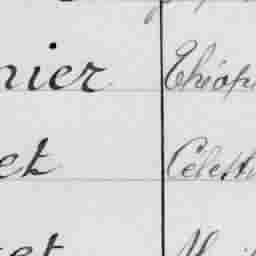 nier Théop
et Célest
et